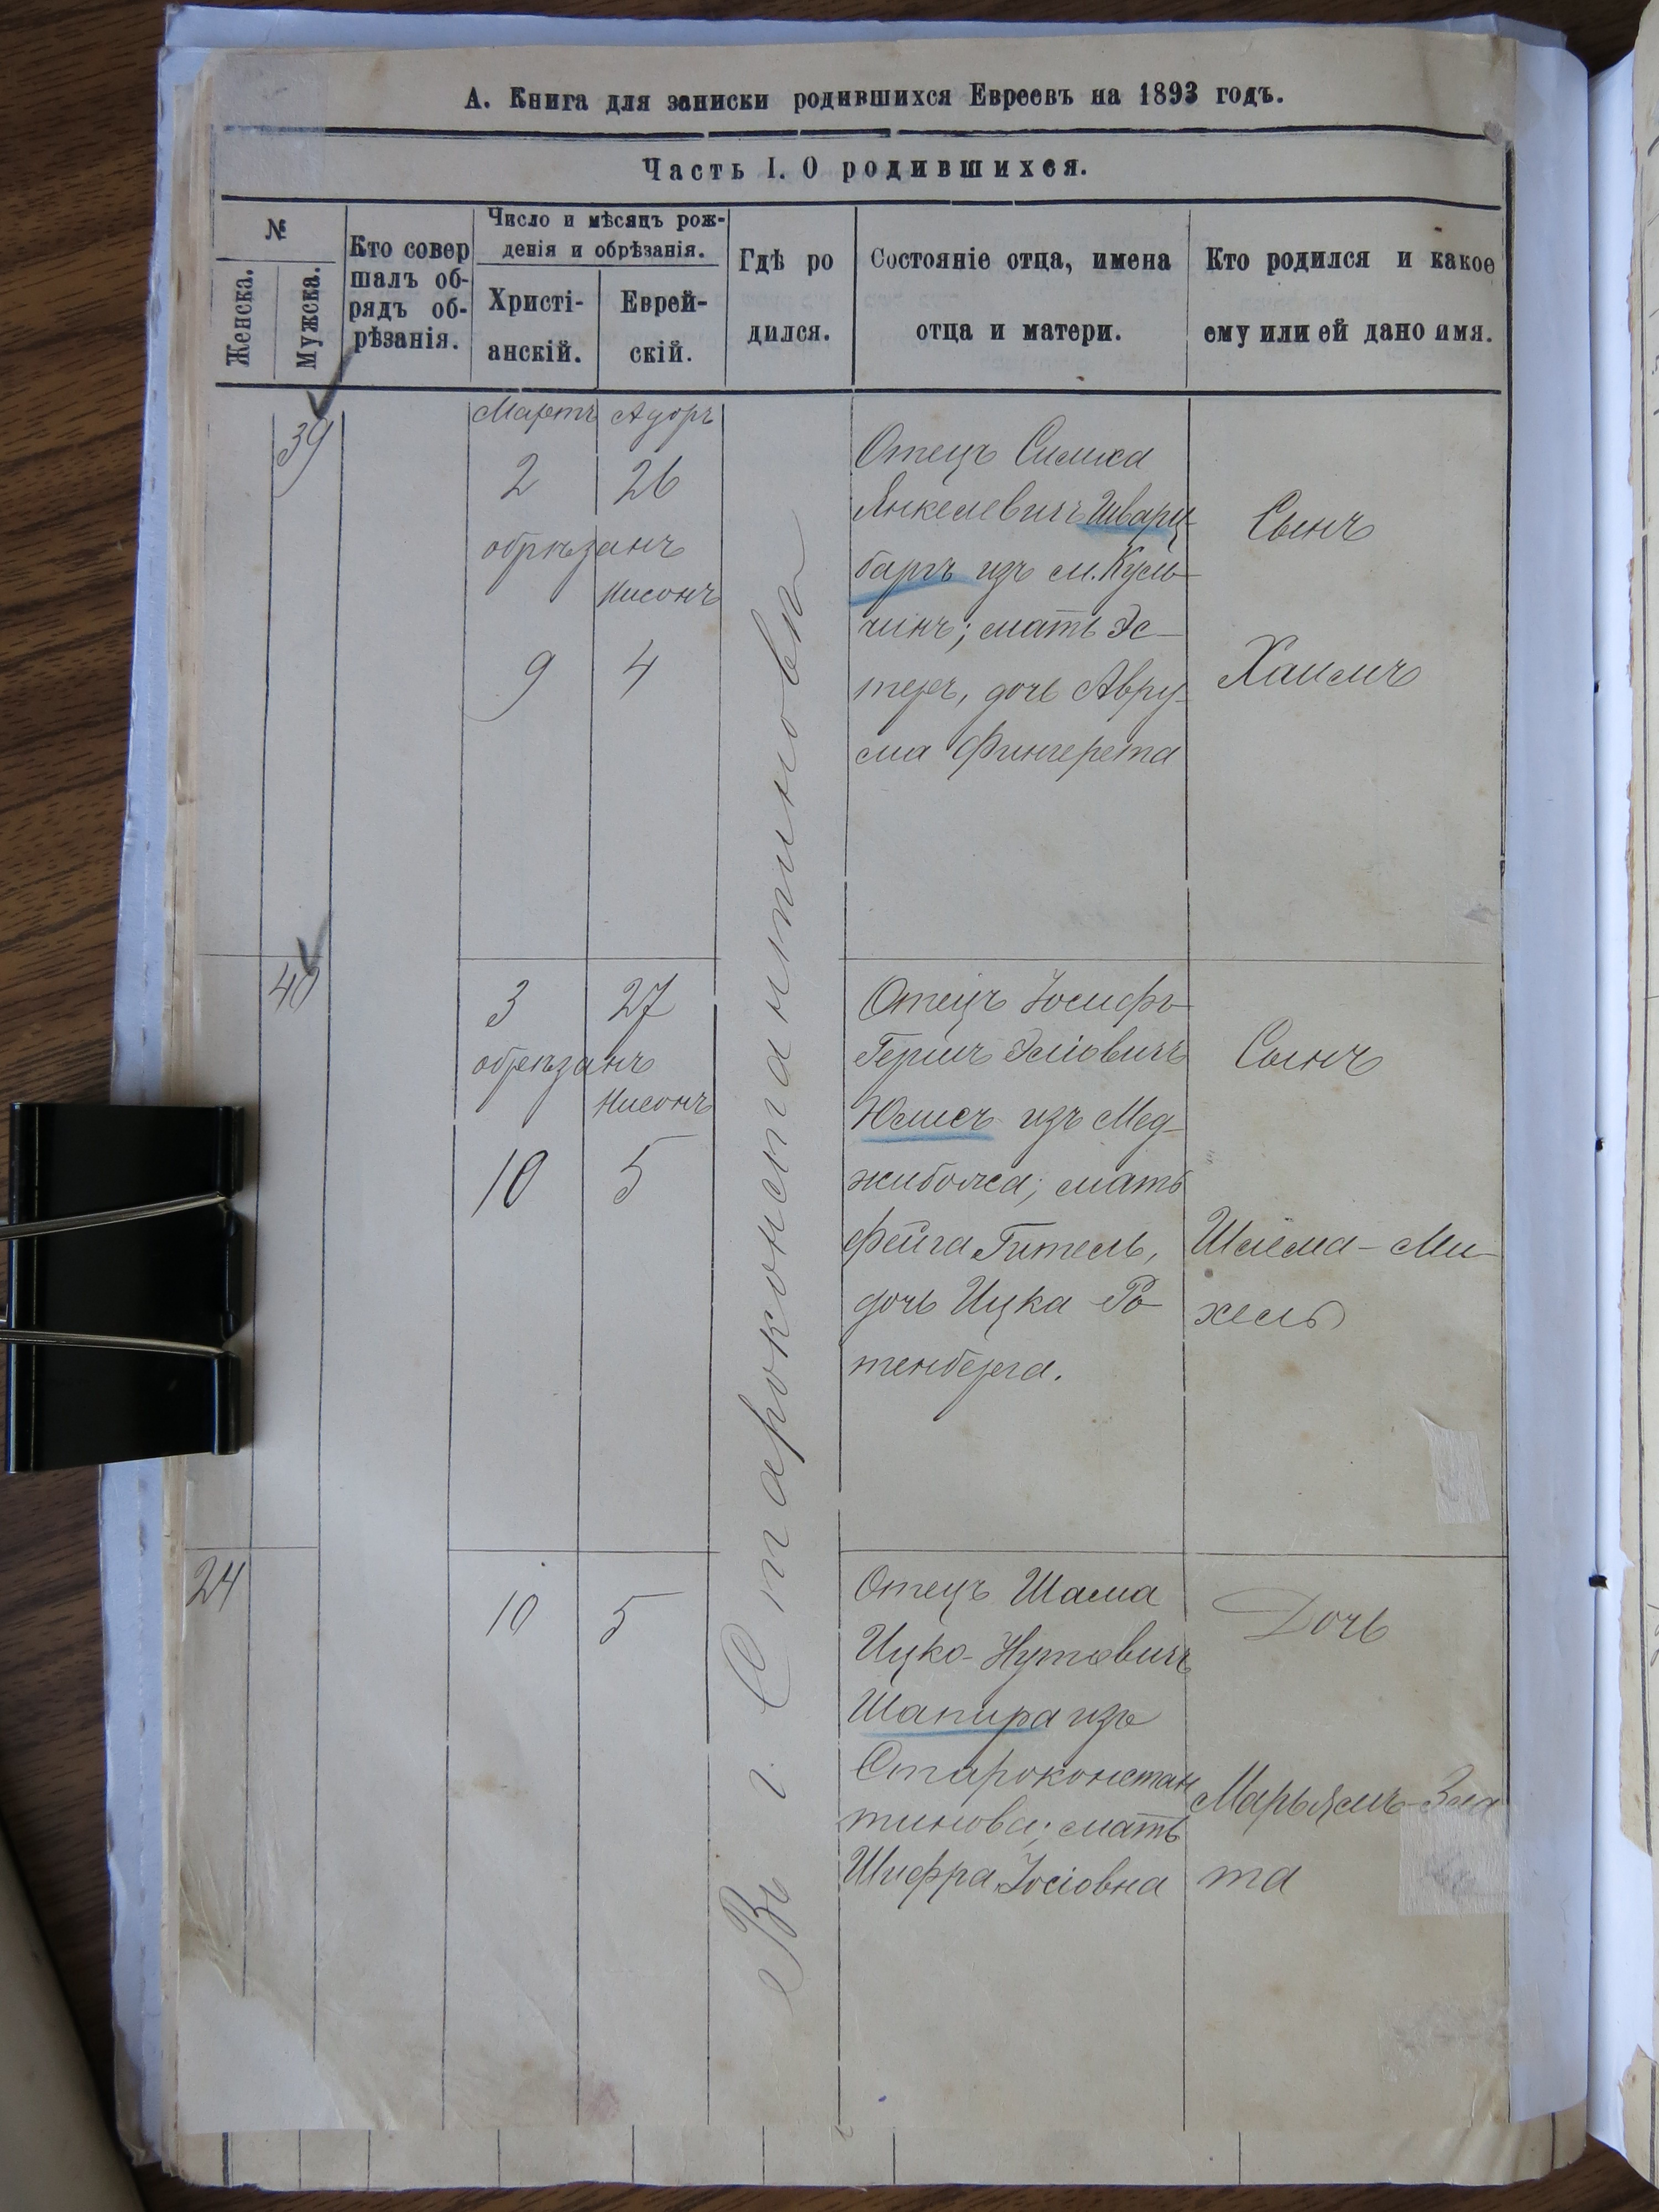 А. Книга для записки родившихся Евреевъ на 1893 годъ.
Часть I. О родившихся.
№
Женска.
Мужска.
Кто совер
шалъ об-
рядъ об-
рѣзанія.
Число и мѣсяцъ рож-
денія и обрѣзанія.
Христі-
анскій.
Еврей-
скій.
Гдѣ ро
дился.
Состояніе отца, имена
отца и матери.
Кто родился и какое
ему или ей дано имя.
39
Мартъ Адоръ
2 26
обрѣзанъ
Нисонъ
9 4
Въ г. Староконстантиновѣ
Отецъ Симха
Янкелевичъ Шварц
баргъ изъ м. Куль-
чинъ; мать Эс-
теръ, дочь Авру-
ма Фингерета
Сынъ
Хаимъ
40
3 27
обрѣзанъ
Нисонъ
10 5
Отецъ Іосифъ-
Гершъ Эліовичъ
изъ Мед-
жибожа; мать
Фейга Гитель,
дочь Ицка Ро-
тенберга.
Сынъ
Шлёма-Ми-
хель
24
10 5
Отецъ Шама
Ицко-Нутовичъ
Шапира изъ
Староконстан
тинова; мать
Шифра Іосіовна
Дочь
Марьямъ-Зла
та